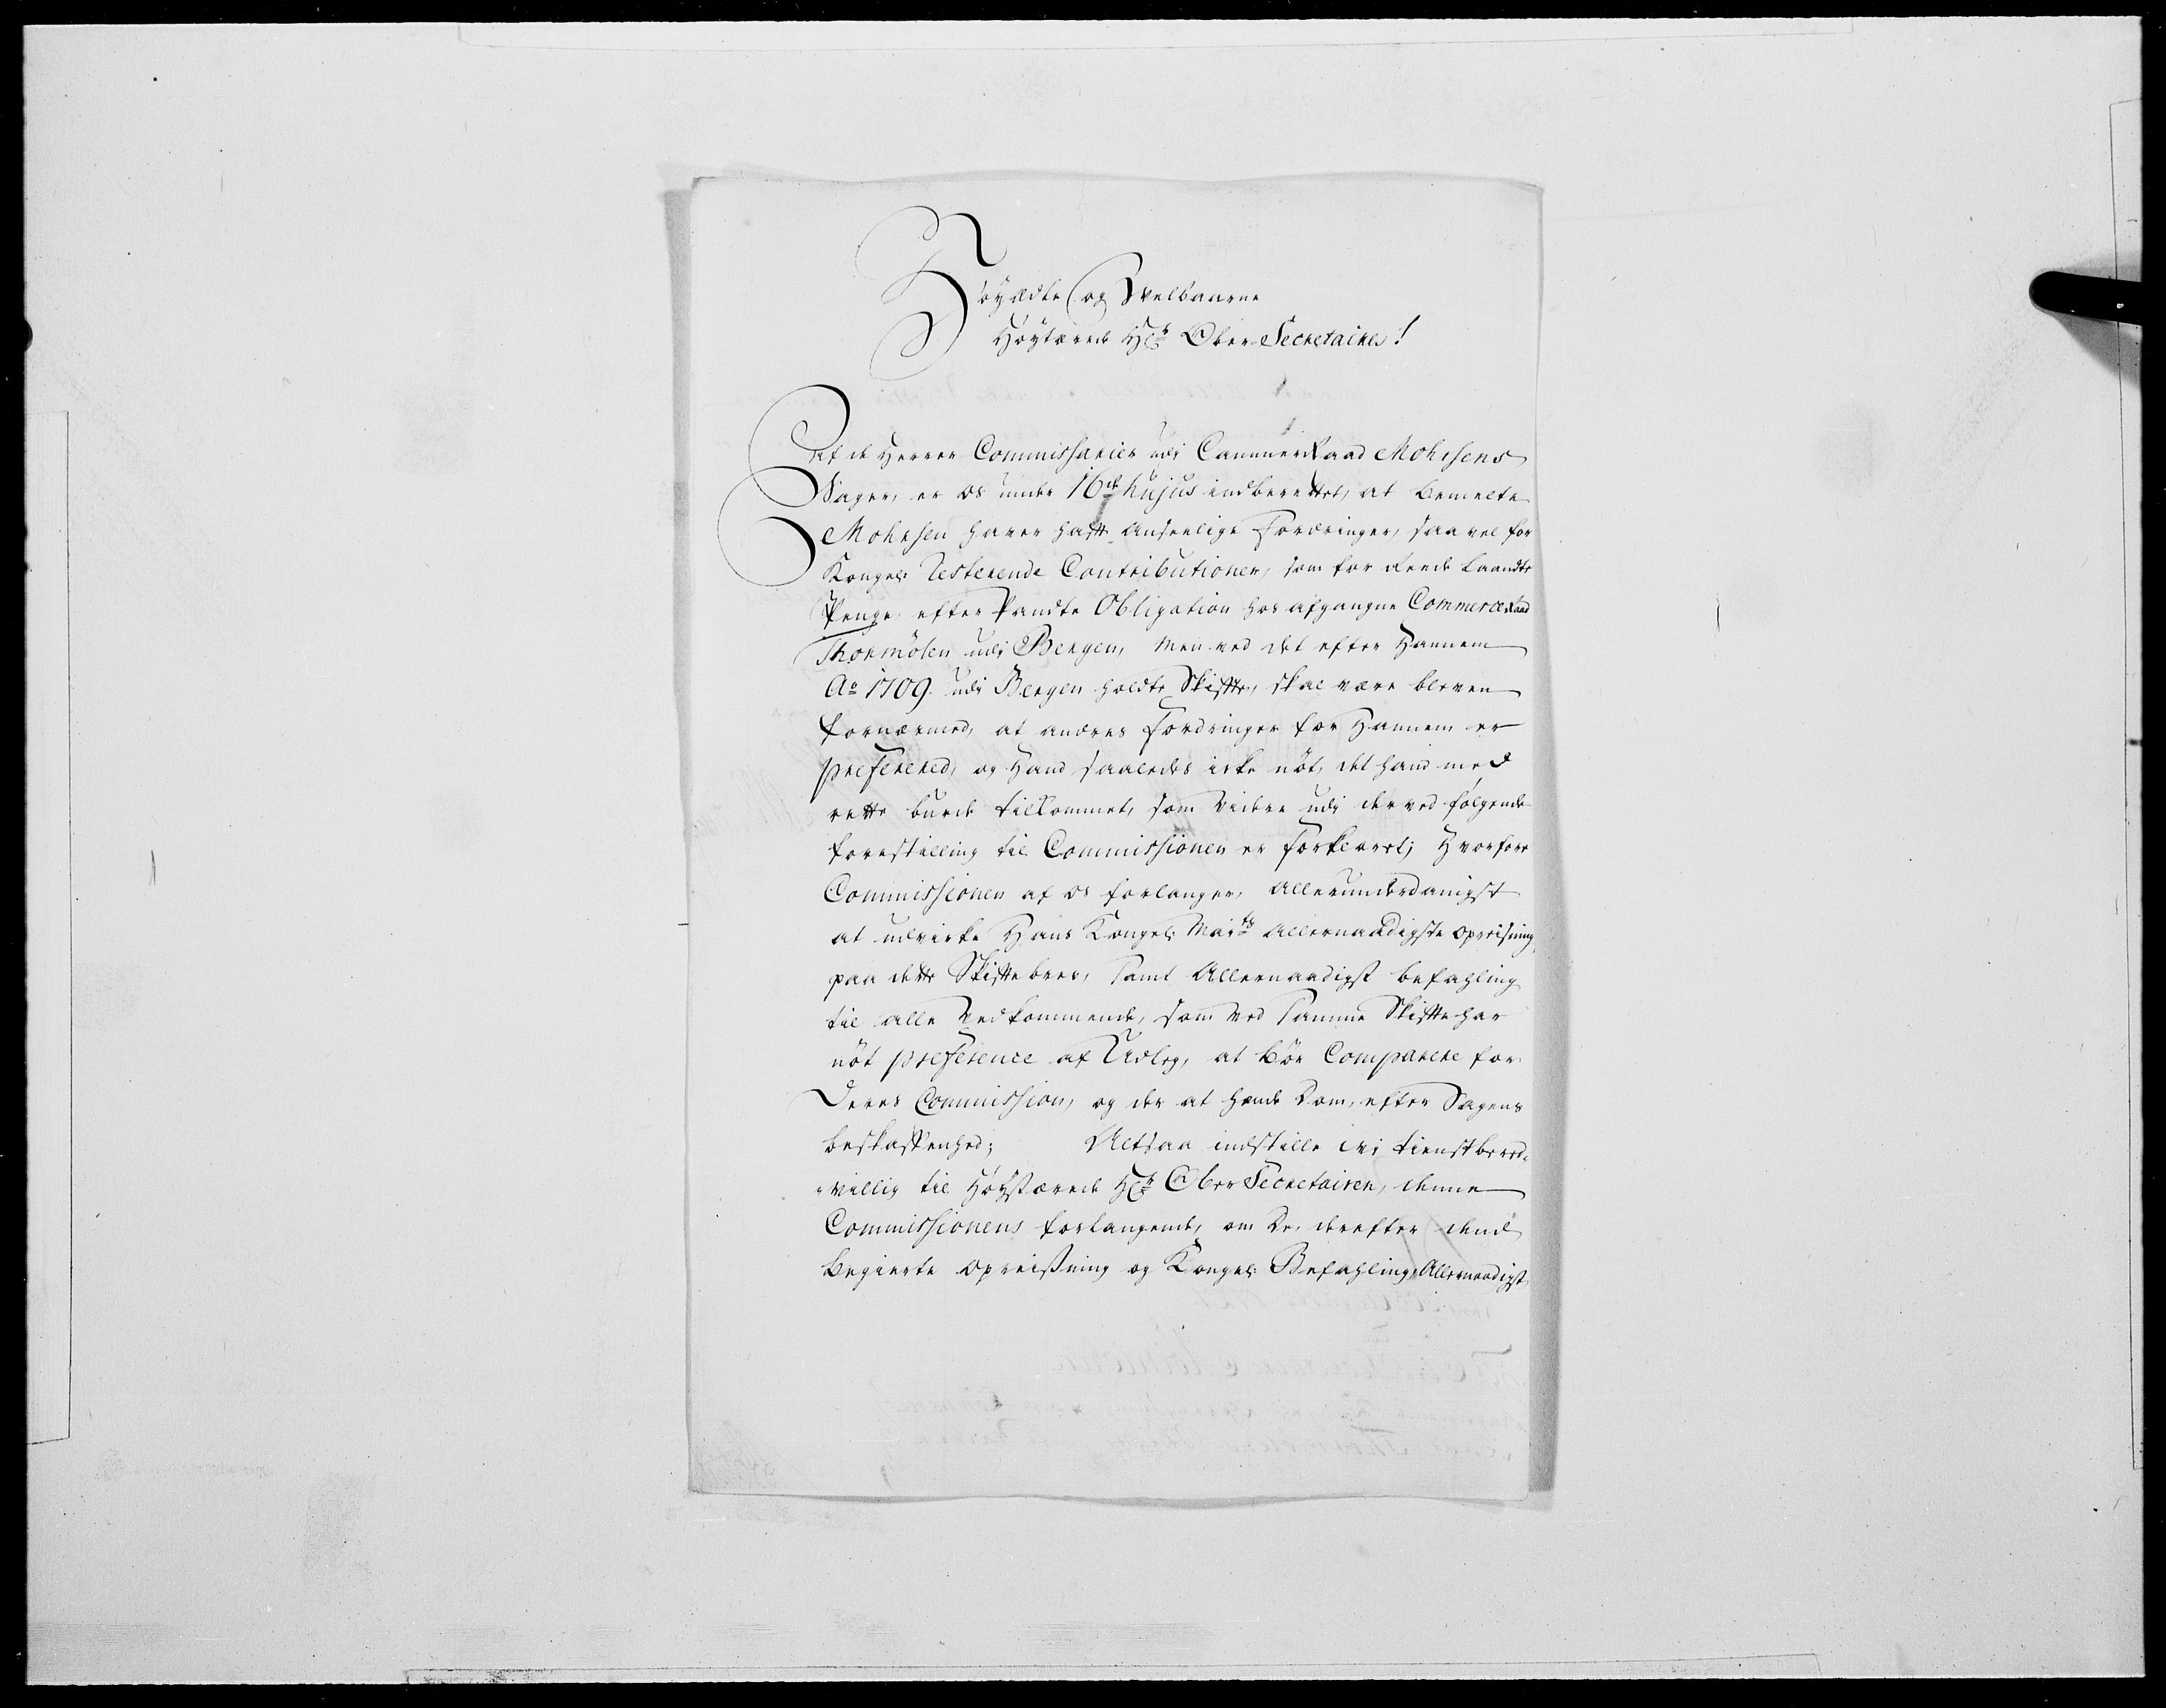 Høyædle og Velbaarne
Høytærede Hr Ober-Secretaire!
Af de Herrer Commissarier udj Cammerraad Mohrsens
Sager, er os under 16de hujus indberettet, at bemelte
Mohrsen haver hafft anseelige Fordringer, saa vel for
Kongel: resterende Contributioner, som for deende laandte
Penge, efter Pandte Obligation hos afgangne Commerceraad
Thormölen udj Bergen, Men ved det efter Hannem
Ao 1709. udj Bergen holdte Skiffte, skal være bleven
fornærmed, at andres Fordringer for Hannem er
prefereret, og Hand saaledes icke nöt, det hand med
rette burde tilkommet, som videre udj derved følgende
forestilling til Commissionen er Forklaret; Hvorfore
Commissionen af os forlanger, allerunderdanigst
at udvirke Hans Kongel: Mayts allernaadigste opreisning
paa dette Skifftebrev, samt Allernaadigst befahling
til alle Vedkommende, som ved samme Skiffte har
nöt preference af Udleg, at bör Comparere for
Deres Commission, og der at hænde Dom, efter Sagens
beskaffenhed; Altsaa indstille vi tienstbered-
villig til Høystærede Hr Ober Secretairen, denne
Commissionens forlangende, om De. derefter dend
begierte opreissning og Kongel: Befahling, Allernaadigst